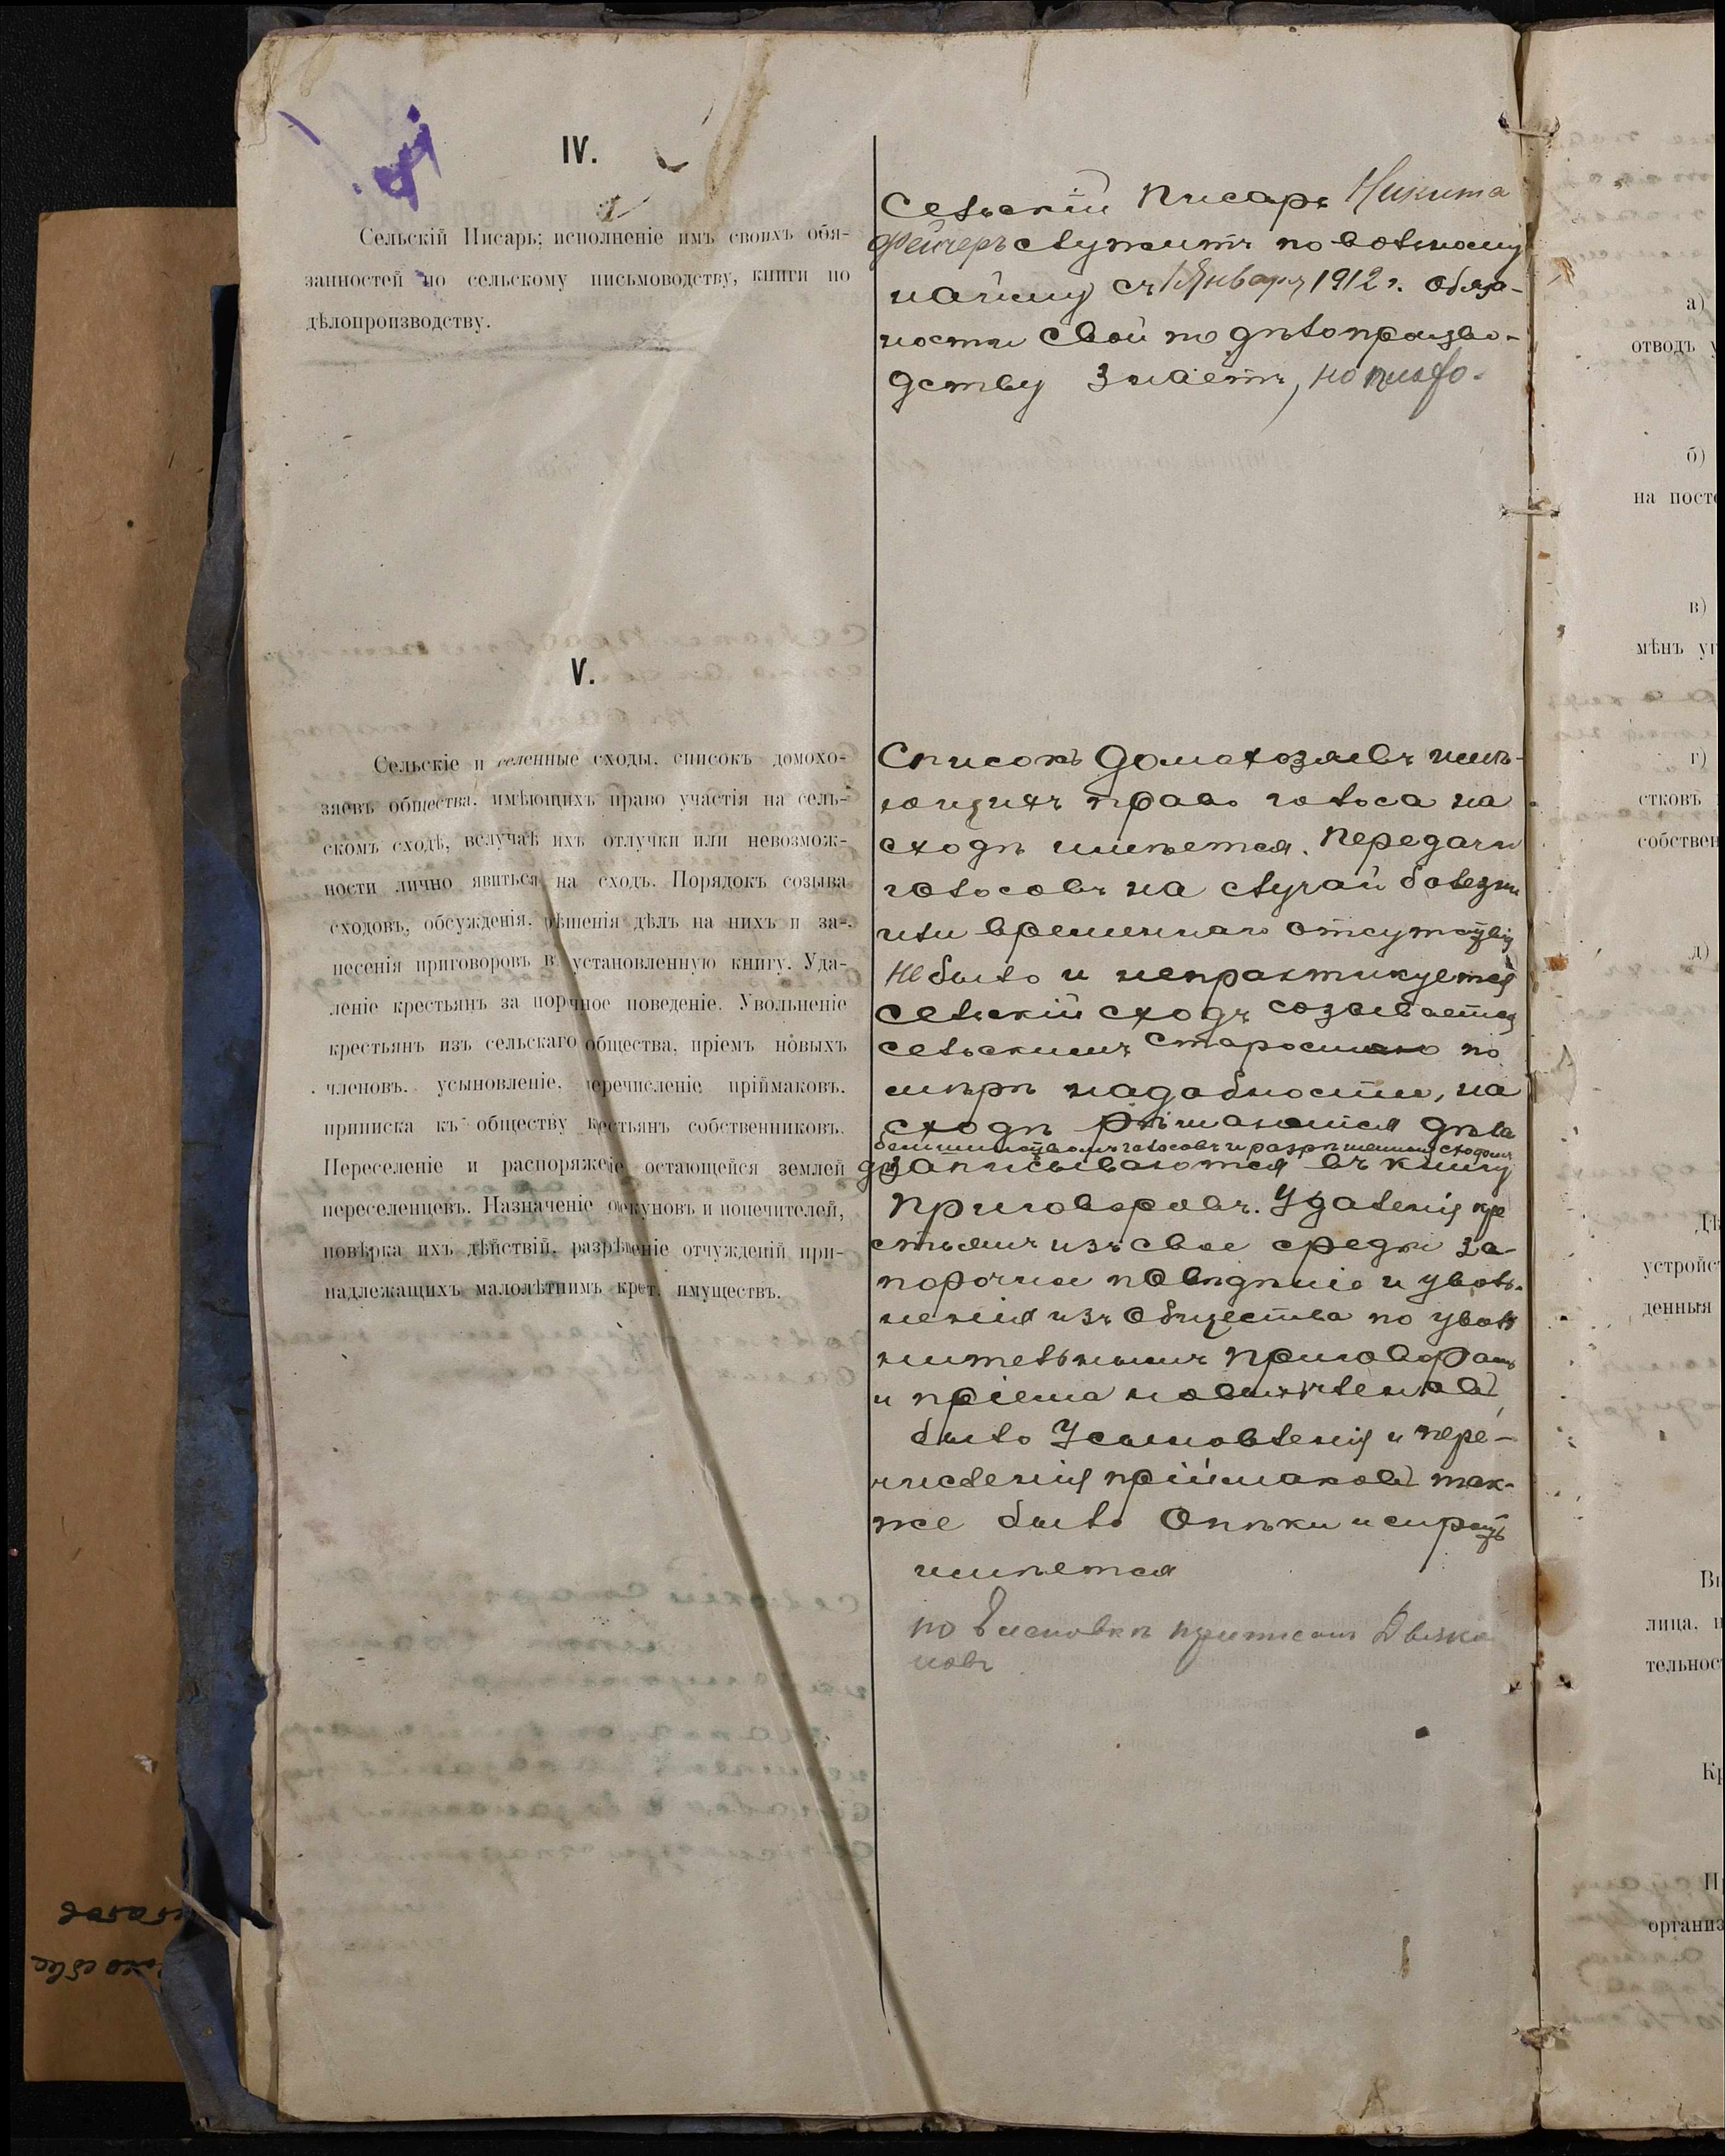 IV.
Сельскій Писарь; исполненіе имъ своихъ обя-
занностей по сельскому письмоводству, книги по
дѣлопроизводству.
Сельскій Писарь Никита
служитъ по вольному
найму съ 1 Января 1912 г. обяза-
ности свои по дѣлопроизво-
дству знаетъ, но
V.
Сельскіе и селенные сходы, списокъ домохо-
зяевъ общества, имѣющихъ право участія на сель-
скомъ сходѣ, вслучаѣ ихъ отлучки или невозмож-
ности лично явиться на сходъ. Порядокъ созыва
сходовъ, обсужденія, рѣшенія дѣлъ на нихъ и за-
несенія приговоровъ в установленную книгу. Уда-
леніе крестьянъ за порчное поведеніе. Увольненіе
крестьянъ изъ сельскаго общества, пріемъ новыхъ
членовъ, усыновленіе, перечисленіе пріймаковъ,
приписка къ обществу крестьянъ собственниковъ.
Переселеніе и распоряженіе остающейся землей
переселенцевъ. Назначеніе опекуновъ и попечителей,
повѣрка ихъ дѣйствій, разрѣшеніе отчужденій при-
надлежащихъ малолѣтнимъ крет. имуществъ.
Списокъ домохозяевъ имѣ-
ющихъ право голоса на
сходѣ имѣется. Передачи
голосовъ на случай болезни
или временнаго отсутствія
не было и непрактикуется
Сельскій сходъ созывается
сельскимъ старостою по
мѣрѣ надобности, на
сходѣ рѣшаются дѣла
большинствомъ голосовъ и разрѣшенныя сходомъ
записываются въ книгу
приговоровъ. Удаленія кре
стьянъ изъ свое среды за
порочное поведѣніе и уволь-
ненія изъ Общества по уволь
нительнымъ приговорамъ
и пріема новыхъ членовъ
было Усыновленія и пере-
численія пріймаковъ так-
же было Опѣки и сиротъ
имѣется
по
новъ
а)
отводъ
б)
на посто
в)
мѣнъ уг
г)
стковъ
собствен
д)
устройст
денныя
лица, и
тельност
Кр
организ